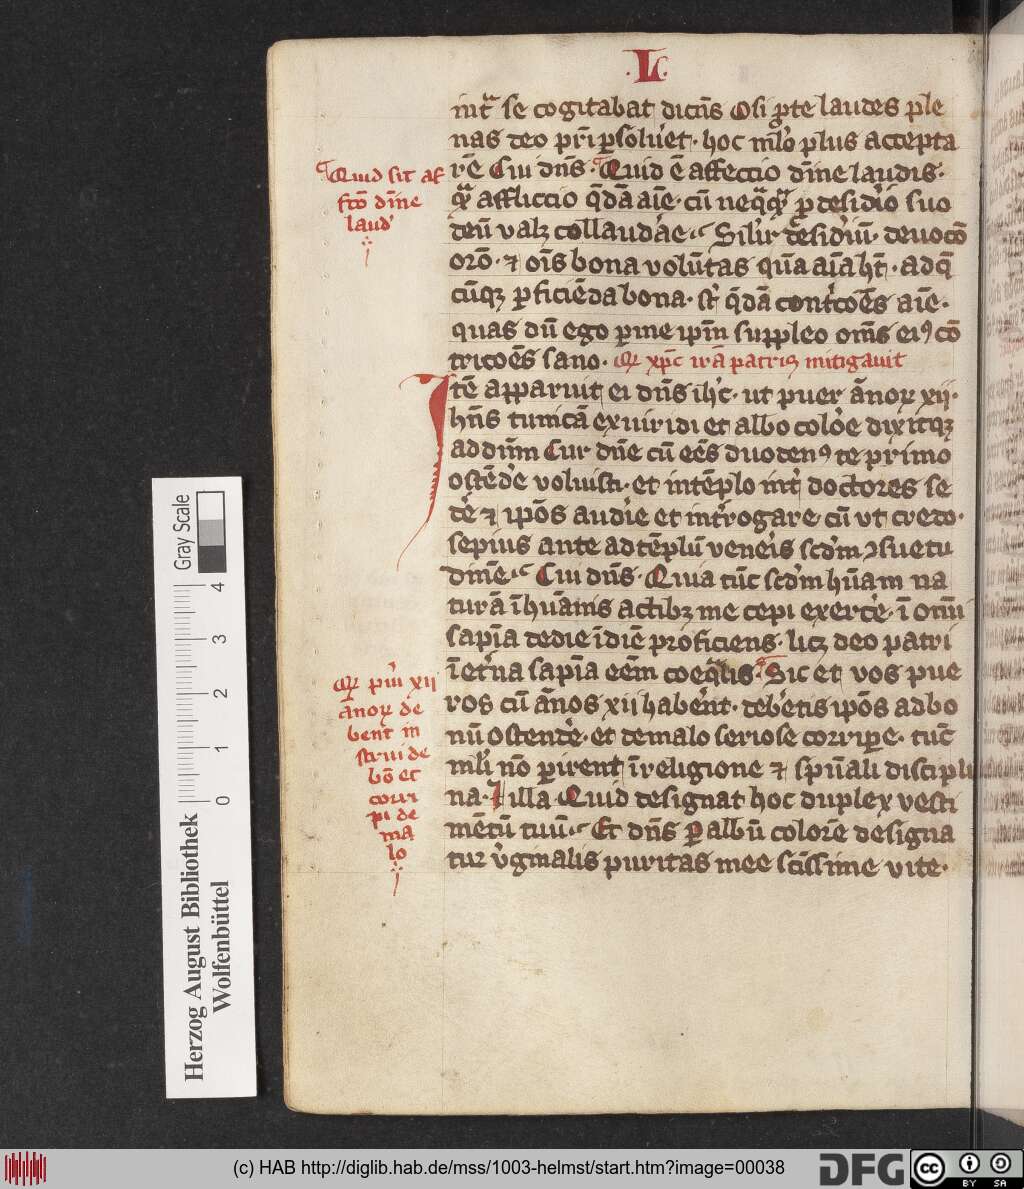 ·L·
int͛ se cogitabat dicēs Osi ꝓ te laudes ple
nas deo pr̄i ꝑsolu͛et · hoc m̄lo plus accepta
rē Cui dn̄s · Quid ē affectio dīne laudis ·
afflictio q̄dā aīe · cū ꝑ desid͛io suo
deū val; collaudāe Sil'r desid͛iū · deuocō
orō · ⁊ oīs bona volūtas quā aīa h̄t · ad q̄
cūq; ꝑficiēda bona · st̄ q̄dā cont͛coēs aīe ·
quas dū ego ꝑ me ip̄m suppleo om̄s eiꝰ cō
tricoēs sano · Qꝝ xp̄c irā patris mitigauit
Itē apparuit ei dn̄s ih̄c · ut puer ānoꝝ xij ·
hn̄s tunicā ex uiridi et albo colo͛e dixitq;
ad dn̄m Cur dn̄e cū eēs duodenꝰ te primo
ostēd͛e voluisti · et in tēplo int͛ doctores se
d͛e ⁊ ip̄os audi͛e et int͛rogare cū vt credo ·
sepius ante ad tēplū ven͛eis scd'm ꝯsuetu
dinē Cui dn̄s · Quia tūc scd'm hūam na
turā ī hūanis actib; me cepi exerc͛e · ī om̄i
sapīa de die ī diē proficiens · lic; deo patri
ī et͛na sapīa eēm coeq̄lis · Sic et vos pue
ros cū ānos xii habe͛nt · deb͛etis ip̄os ad bo
nū ostend͛e · et de malo seriose corripe · tūc
ml͛i nō ꝑirent ī religione ⁊ sp̄uali discipli
na · Et illa Quid designat hoc duplex vesti
mētū tuū Et dn̄s Ꝑ albū colorē designa
tur v͛ginalis puritas mee sc̄issime vite ·
Quid sit af
fc̄o dīne
laud'
Qꝝ pu͛i xij
ānoꝝ de
bent in
strui de
bō et
corri
pi de
ma
lo
Herzog August Bibliothek
Wolfenbüttel
0 1 2 3 4
Gray Scale
(c) HAB http://diglib.hab.de/mss/1003-helmst/start.htm?image=00038
DFG
cc BY SA